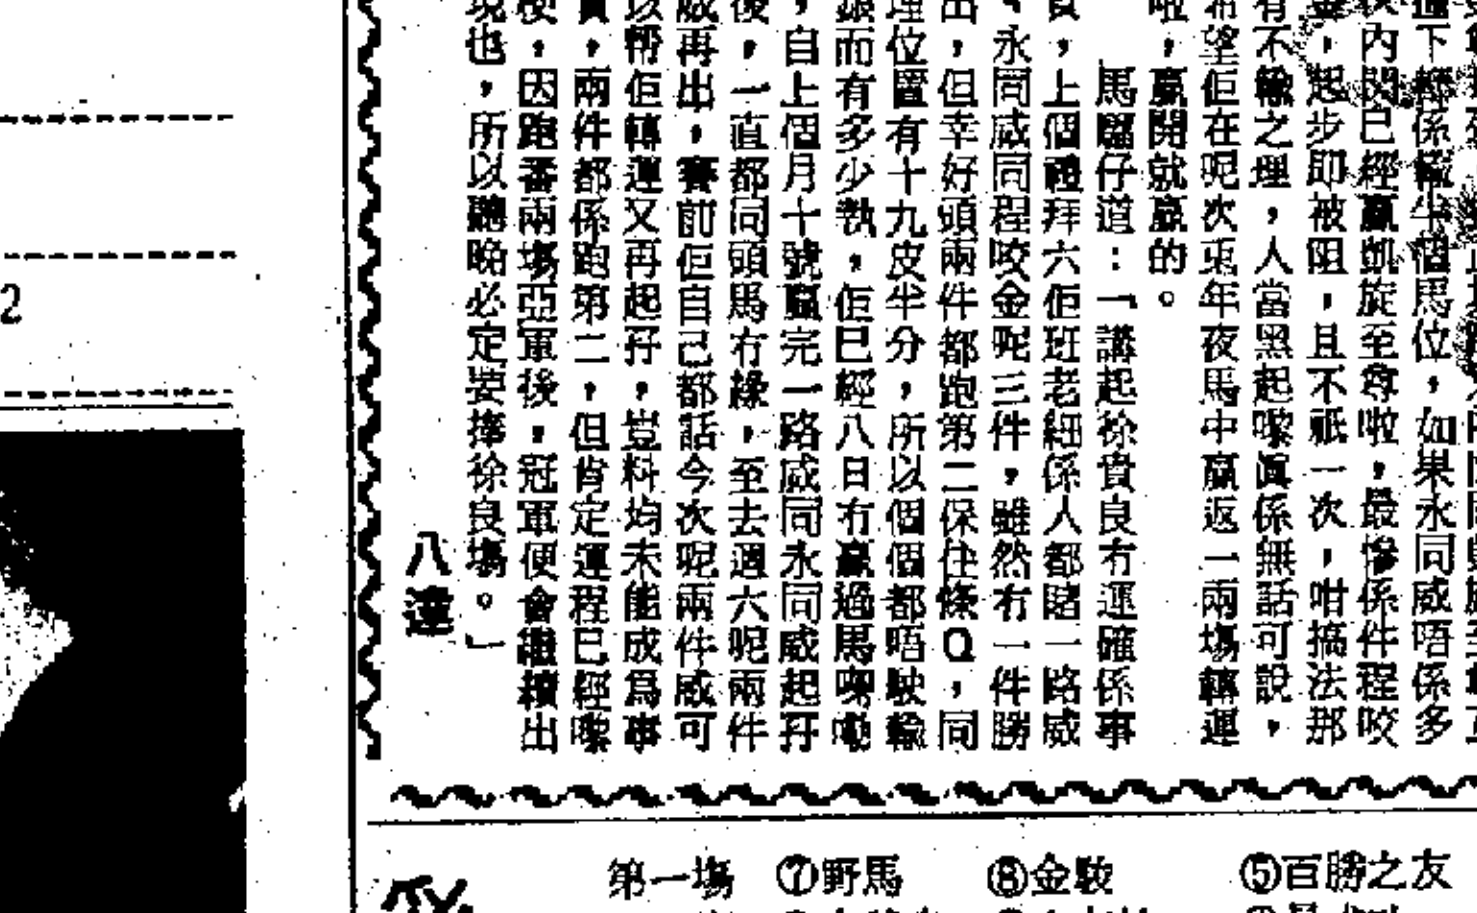 下輕係輸半個馬位，如果永同威唔係多
內閃已經贏凱旋至尊啦，最慘係件程咬
，起步即被阻，且不祇一次，咁搞法那
有不輸之理，人當黑起嚟眞係無話可說，
希望佢在呢次東年夜馬中贏返一兩場轉運
啦，贏開就贏的。
馬騮仔道：「講起徐貴良冇運確係事
，上個禮拜六佢班老細係人都賭一路威
、永同威同程咬金呢三件，雖然冇一件勝
出，但幸好頭兩件都跑第二保住條Q，同
埋位置有十九皮半分，所以個個都唔駛輸
銀而有多少執，佢已經八日冇贏過馬㗎嘞
，自上個月十號贏完一路威同永同威起孖
後，一直都同頭馬冇緣，至去週六呢兩件
威再出，賽前佢自己都話今次呢兩件威可
以幫佢轉運又再起孖，豈料均未能成爲事
實，兩件都係跑第二，但肯定運程已經嚟
梗，因跑番兩場亞軍後，冠軍便會繼續出
現也，所以聽晚必定要捧徐良場。」
八達
2
第一場 ⑦野馬 ⑧金駿 ⑤百勝之友